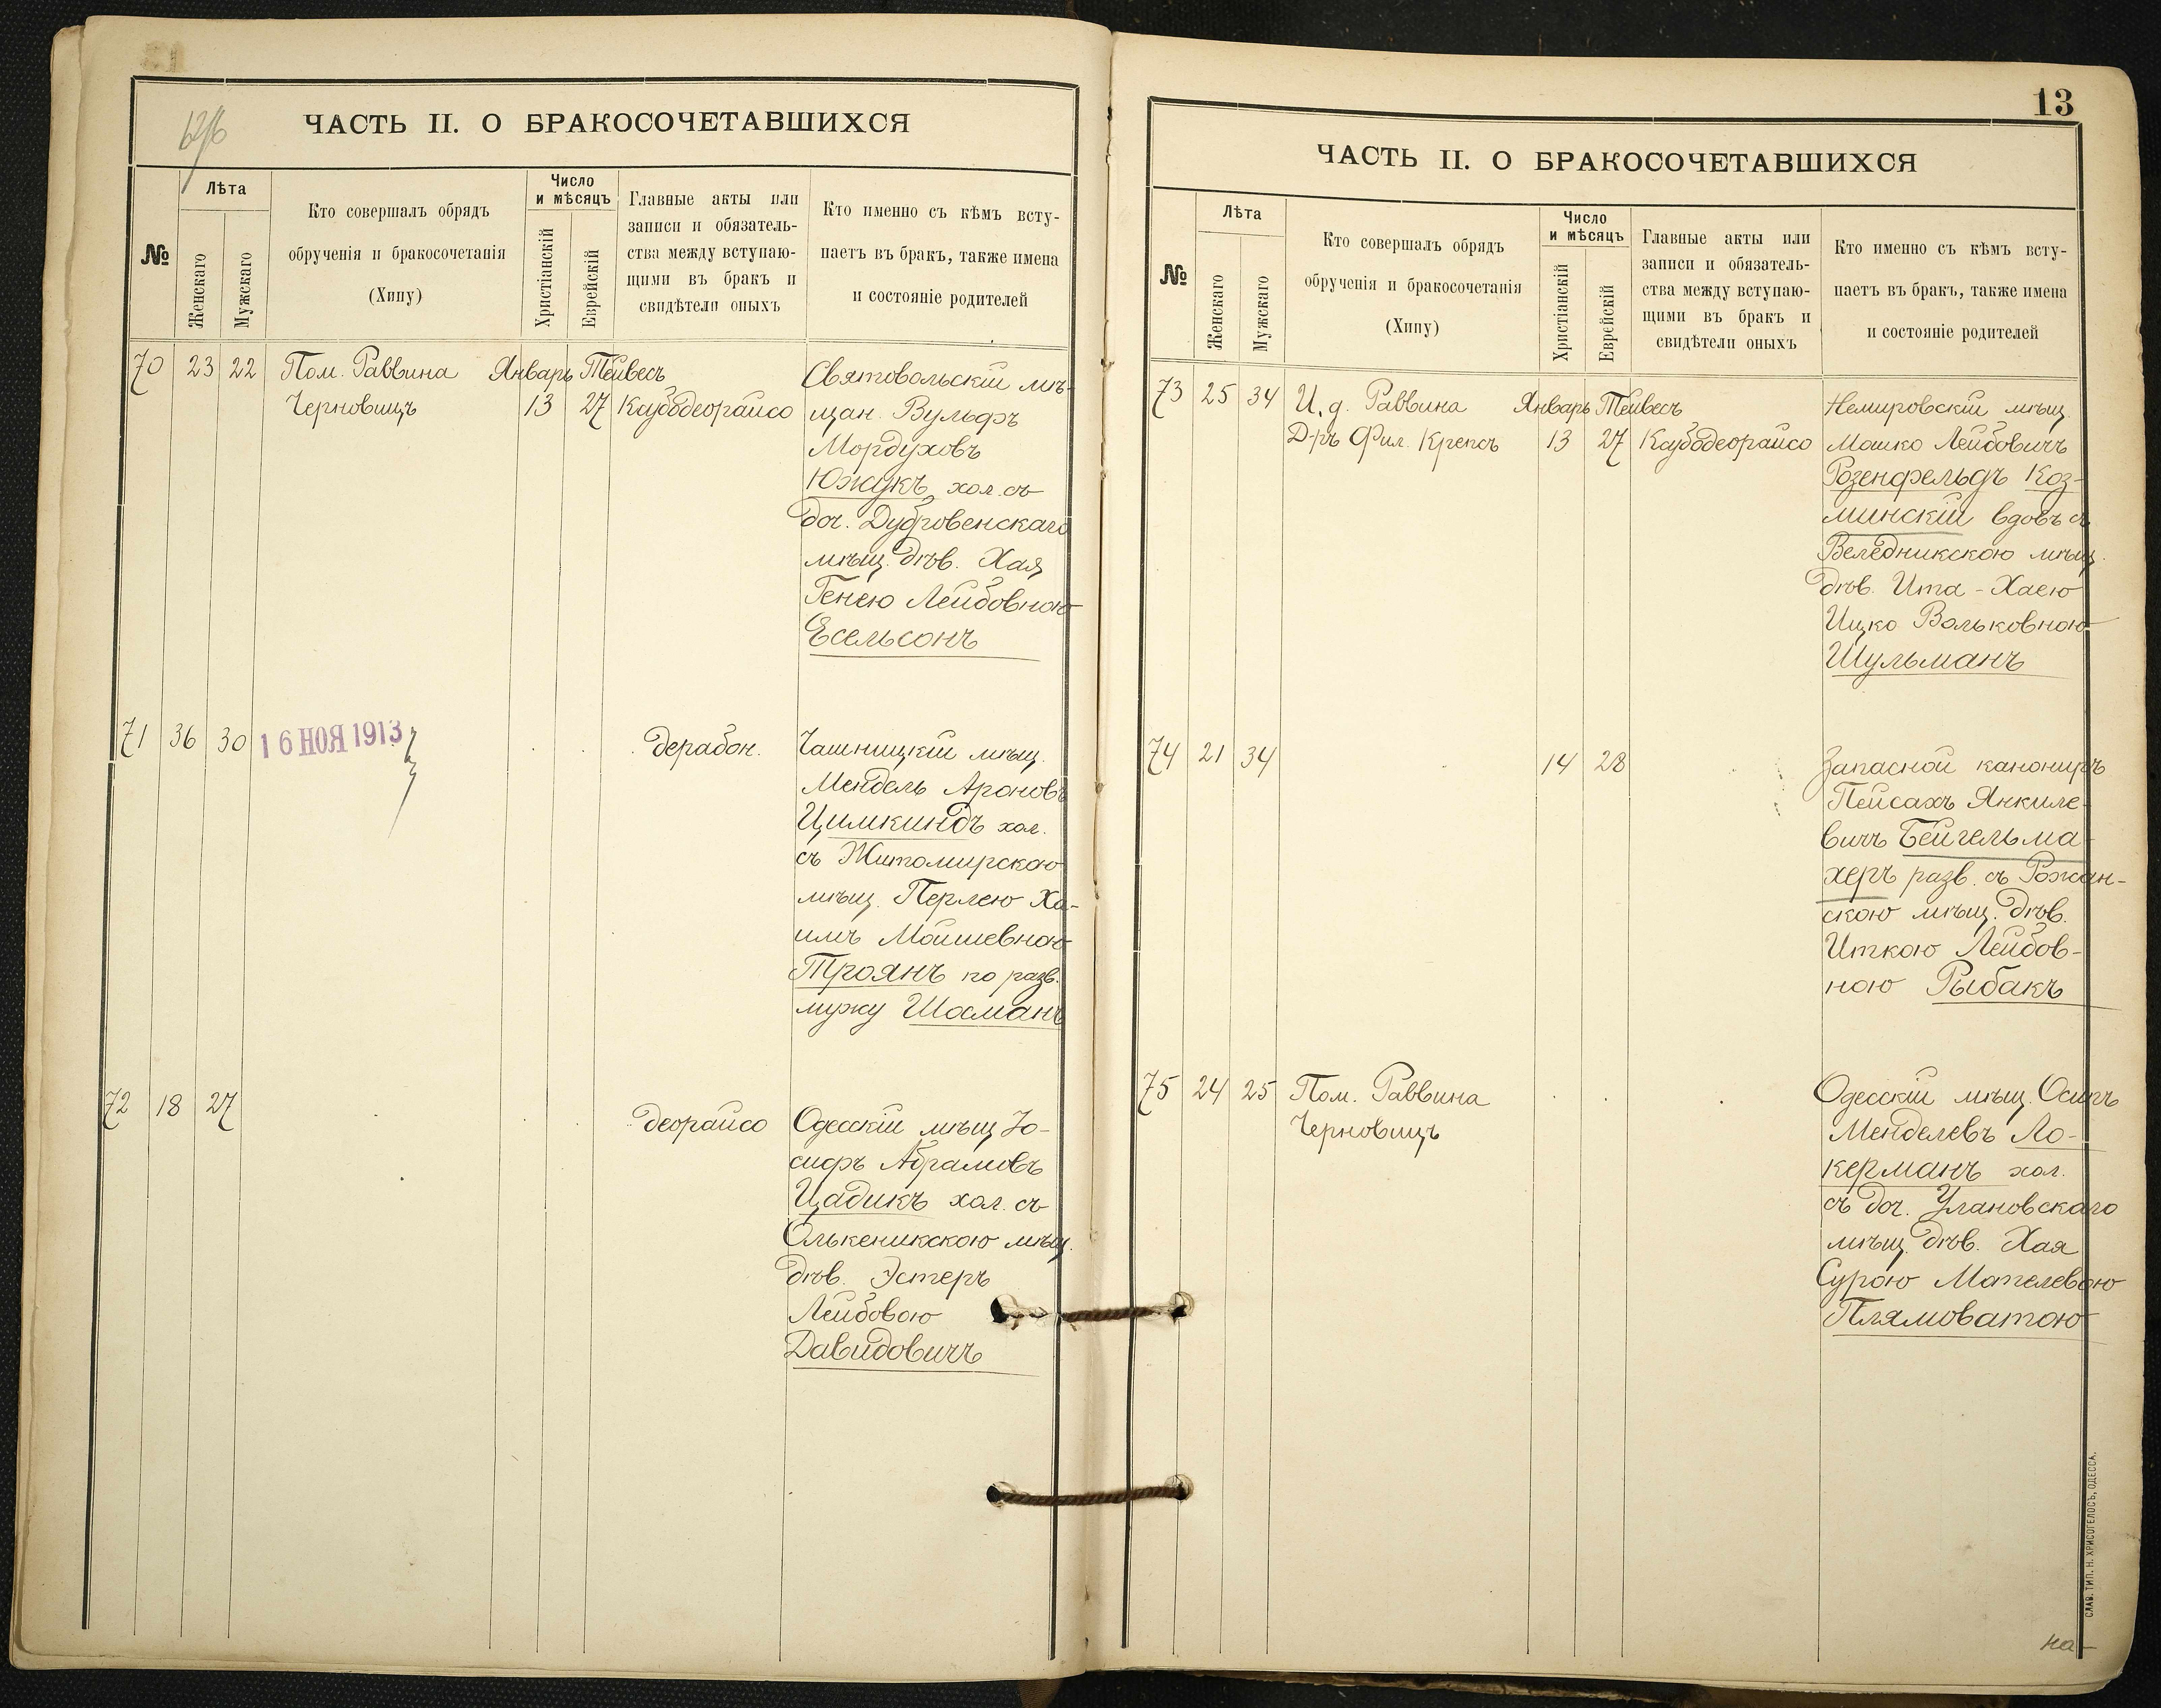 ЧАСТЬ II. О БРАКОСОЧЕТАВШИХСЯ
№
Лѣта
Женскаго
Мужскаго
Кто совершалъ обрядъ
обрученія и бракосочетанія
(Хипу)
Число
и мѣсяцъ
Христіанскій
Еврейскій
Главные акты или
записи и обязатель-
ства между вступаю-
щими въ бракъ и
свидѣтели оныхъ
Кто именно съ кѣмъ всту-
паетъ въ бракъ, также имена
и состояніе родителей
70 23 22 Пом. Раввина Январь Тейвесъ Святовольскій мѣ-
Черновицъ 13 27 Каубодеорайсо щан. Вульфъ
Мордуховъ
Южукъ, хол. съ
доч. Дубровенскаго
мѣщ. дѣв. Хая
Генею Лейбовною
Есельсонъ
71 36 30 16 НОЯ 1913 дерабон. Чашницкій мѣщ.
Мендель Ароновъ
Цимкиндъ хол.
съ Житомирскою
мѣщ. Перлею Ха-
имъ Мойшевною
Троянъ по разв.
мужу Шосманъ
72 18 27 деорайсо Одесскій мѣщ. Іо-
сифъ Абрамовъ
Цадикъ хол. съ
Олькеникскою мѣщ.
дѣв. Эстеръ
Лейбовою
Давидовичъ
13
ЧАСТЬ II. О БРАКОСОЧЕТАВШИХСЯ
№
Лѣта
Женскаго
Мужскаго
Кто совершалъ обрядъ
обрученія и бракосочетанія
(Хипу)
Число
и мѣсяцъ
Христіанскій
Еврейскій
Главные акты или
записи и обязатель-
ства между вступаю-
щими въ бракъ и
свидѣтели оныхъ
Кто именно съ кѣмъ всту-
паетъ въ бракъ, также имена
и состояніе родителей
73 25 34 И. д. Раввина Январь Тейвесъ Немировскій мѣщ.
Д-ръ Фил. Крепсъ 13 27 Каубодеорайсо Мошко Лейбовичъ
Розенфельдъ Коз-
минскій вдовъ съ
Веледникскою мѣщ.
дѣв. Ита-Хаею
Ицко Вольковною
Шульманъ
74 21 34 14 28 Запасной канониръ
Пейсахъ Янкиле-
вичъ Бейгельма-
херъ разв. съ Рожан-
скою мѣщ. дѣв.
Иткою Лейбов-
ною Рыбакъ
75 24 25 Пом. Раввина Одесскій мѣщ. Осипъ
Черновицъ Менделевъ Ло-
керманъ хол.
съ доч. Улановскаго
мѣщ. дѣв. Хая
Сурою Мотелевою
Плямоватою
СЛАВ. ТИП. Н. ХРИСОГЕЛОСЪ, ОДЕССА.
на-